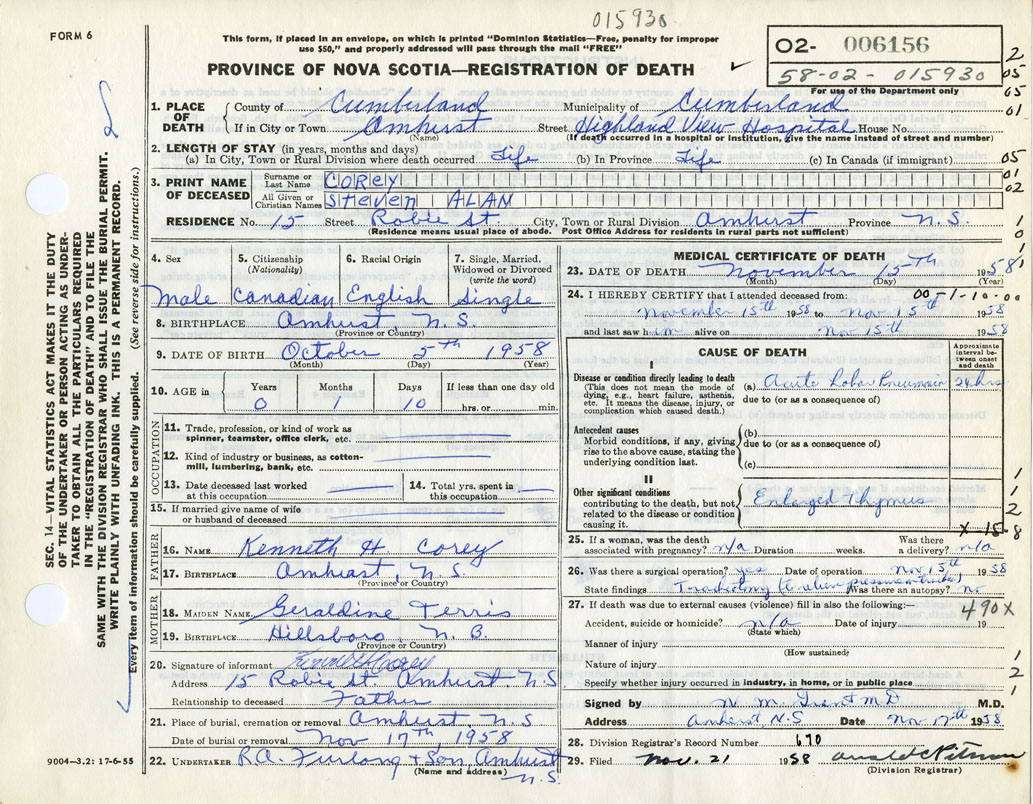 015930
FORM 6
This form, if placed in an envelope, on which is printed "Dominion Statistics—Free, penalty for improper
use $50," and properly addressed will pass through the mail "FREE"
PROVINCE OF NOVA SCOTIA—REGISTRATION OF DEATH
02- 006156
58-02-015930
For use of the Department only
2
05
05
01
05
01
02
1
0
1
SEC. 14—VITAL STATISTICS ACT MAKES IT THE DUTY
OF THE UNDERTAKER OR PERSON ACTING AS UNDER-
TAKER TO OBTAIN ALL THE PARTICULARS REQUIRED
IN THE "REGISTRATION OF DEATH" AND TO FILE THE
SAME WITH THE DIVISION REGISTRAR WHO SHALL ISSUE THE BURIAL PERMIT.
WRITE PLAINLY WITH UNFADING INK. THIS IS A PERMANENT RECORD.
Every item of information should be carefully supplied. (See reverse side for instructions.)
1. PLACE OF DEATH
County of Cumberland Municipality of Cumberland
If in City or Town Amherst Street Highland View Hospital House No.
(Name) (If death occurred in a hospital or institution, give the name instead of street and number)
2. LENGTH OF STAY (in years, months and days)
(a) In City, Town or Rural Division where death occurred Life (b) In Province Life (c) In Canada (if immigrant)
3. PRINT NAME OF DECEASED
Surname or Last Name COREY
All Given or Christian Names STEVEN ALAN
RESIDENCE No. 15 Street Robie St. City, Town or Rural Division Amherst Province N.S.
(Residence means usual place of abode. Post Office Address for residents in rural parts not sufficient)
4. Sex 5. Citizenship (Nationality) 6. Racial Origin 7. Single, Married, Widowed or Divorced (write the word)
Male Canadian English Single
8. BIRTHPLACE Amherst, N.S.
(Province or Country)
9. DATE OF BIRTH October 5th 1958
(Month) (Day) (Year)
10. AGE in Years Months Days If less than one day old
0 1 10 hrs. or min.
OCCUPATION
11. Trade, profession, or kind of work as
spinner, teamster, office clerk, etc.
12. Kind of industry or business, as cotton-
mill, lumbering, bank, etc.
13. Date deceased last worked
at this occupation
14. Total yrs. spent in
this occupation
15. If married give name of wife
or husband of deceased
FATHER
16. NAME Kenneth H Corey
17. BIRTHPLACE Amherst, N.S.
(Province or Country)
MOTHER
18. MAIDEN NAME Geraldine Terris
19. BIRTHPLACE Hillsboro, N.B.
(Province or Country)
20. Signature of informant Kenneth Corey
Address 15 Robie St. Amherst. N.S
Relationship to deceased Father
21. Place of burial, cremation or removal Amherst N.S
Date of burial or removal Nov 17th 1958
22. UNDERTAKER R.A. Furlong + Son Amherst
(Name and address) N.S.
9004—3.2: 17-6-55
MEDICAL CERTIFICATE OF DEATH
23. DATE OF DEATH November 15th 1958
(Month) (Day) (Year)
24. I HEREBY CERTIFY that I attended deceased from: 00-1-10-00
November 15th 1958 to Nov 15th 1958
and last saw him alive on Nov 15th 1958
CAUSE OF DEATH
Approximate interval between onset and death
I
Disease or condition directly leading to death
(This does not mean the mode of
dying, e.g., heart failure, asthenia,
etc. It means the disease, injury, or
complication which caused death.)
(a) Acute Lobar Pneumonia 24 hrs
due to (or as a consequence of)
Antecedent causes
Morbid conditions, if any, giving
rise to the above cause, stating the
underlying condition last.
(b)
due to (or as a consequence of)
(c)
II
Other significant conditions
contributing to the death, but not
related to the disease or condition
causing it.
Enlarged Thymus
1
1
2
X 15-8
25. If a woman, was the death
associated with pregnancy? n/a Duration weeks. Was there
a delivery? n/a
26. Was there a surgical operation? yes Date of operation Nov 15th 1958
State findings Was there an autopsy? no
27. If death was due to external causes (violence) fill in also the following:— 490X
Accident, suicide or homicide? n/a Date of injury 19
(State which)
Manner of injury
(How sustained)
Nature of injury
Specify whether injury occurred in industry, in home, or in public place
1
2
1
Signed by M.D.
Address Amherst, N.S Date Nov 17th 1958
28. Division Registrar's Record Number 670
29. Filed Nov. 21 1958
(Division Registrar)